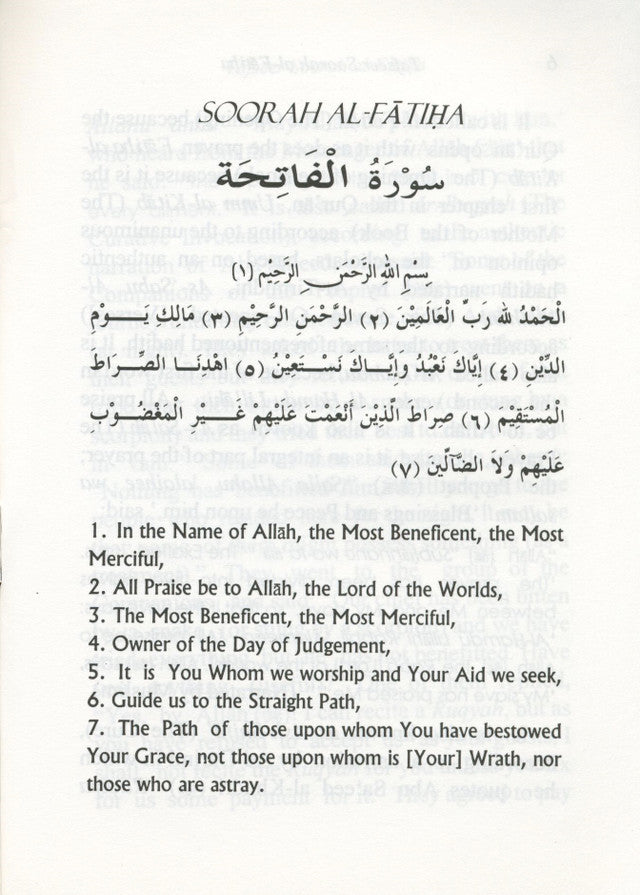 SOORAH AL-FĀTIḤA
سُوْرَةُ الْفَاتِحَة
بِسْمِ اللهِ الرَّحْمَنِ الرَّحِيْمِ (١)
الْحَمْدُ للهِ رَبِّ الْعَالَمِيْنَ (٢) الرَّحْمَنِ الرَّحِيْمِ (٣) مَالِكِ يَـــوْمِ
الدِّيْنِ (٤) إِيَّاكَ نَعْبُدُ وَإِيَّـــاكَ نَسْـــتَعِيْنُ (٥) اهْدِنَـــا الصِّـــرَاطَ
الْمُسْتَقِيْمَ (٦) صِرَاطَ الَّذِيْنَ أَنْعَمْتَ عَلَيْهِمْ غَـــيْرِ الْمَغْضُـــوْبِ
عَلَيْهِمْ وَلاَ الضَّآلِّينَ (٧)
1. In the Name of Allāh, the Most Beneficent, the Most
Merciful,
2. All Praise be to Allāh, the Lord of the Worlds,
3. The Most Beneficent, the Most Merciful,
4. Owner of the Day of Judgement,
5. It is You Whom we worship and Your Aid we seek,
6. Guide us to the Straight Path,
7. The Path of those upon whom You have bestowed
Your Grace, not those upon whom is [Your] Wrath, nor
those who are astray.